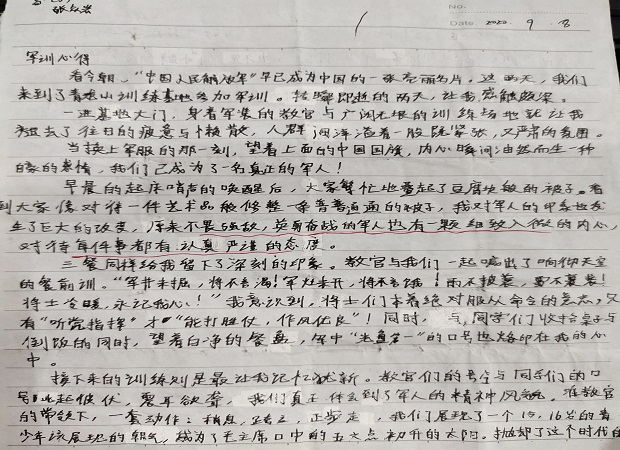 No.
Date. 2020. 9. 8
军训心得
看今朝，“中国人民解放军”早已成为中国的一张亮丽名片。这两天，我们
来到了青山训练基地参加军训。转瞬即逝的两天，让我感触颇深。
一进基地大门，身着军装的教官与广阔无垠的训练场地就让我
褪去了往日的疲惫与懒散，人群间洋溢着一股既紧张，又严肃的氛围。
当换上军服的那一刻，望着上面的中国国旗，内心瞬间油然而生一种
自豪的表情，我们已成为了一名真正的军人！
早晨的起床哨声的唤醒后，大家繁忙地叠起了豆腐块般的被子。看
到大家像对待一件艺术品般修整一条普普通通的被子，我对军人的印象也发
生了巨大的改变，原来不畏强敌，英勇奋战的军人也有一颗细致入微的内心，
对待每件事都有认真严谨的态度。
三餐同样给我留下了深刻的印象。教官与我们一起喊出了响彻天空
的餐前训。“军井未掘，将不言渴！军灶未开，将不言饿！雨不披蓑，雪不裹裘！
将士冷暖，永记我心！”我意识到，将士们本着绝对服从命令的意志，又
有“听党指挥”才“能打胜仗，作风优良”！同时，与同学们收拾桌子与
倒饭的同时，望着白净的餐盘，“光盘”的口号也烙印在我的心
中。
接下来的训练则是最让我记忆犹新。教官们的号令与同学们的口
号此起彼伏，震耳欲聋，我们真正体会到了军人的精神风貌。在教官
的带领下，一套动作：稍息，跨立，正步走，我们展现了一个15，16岁的青
少年该展现的朝气，成为了毛主席口中的五六点初升的太阳。抛却了这个时代的